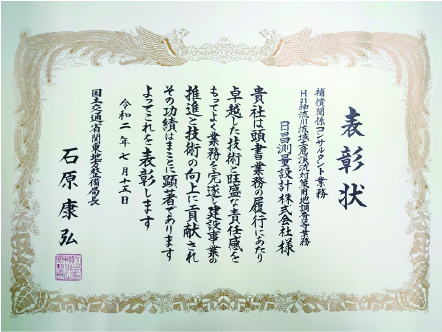 表彰状
補償関係コンサルタント業務
H31神流川流域土倉渓流対策用地調査等業務
日昌測量設計株式会社様
貴社は頭書業務の履行にあたり
卓越した技術と旺盛な責任感を
もってよく業務を完遂し建設事業の
推進と技術の向上に貢献され
その功績はまことに顕著であります
よってこれを表彰します
令和二年七月十五日
国土交通省関東地方整備局長
石原康弘